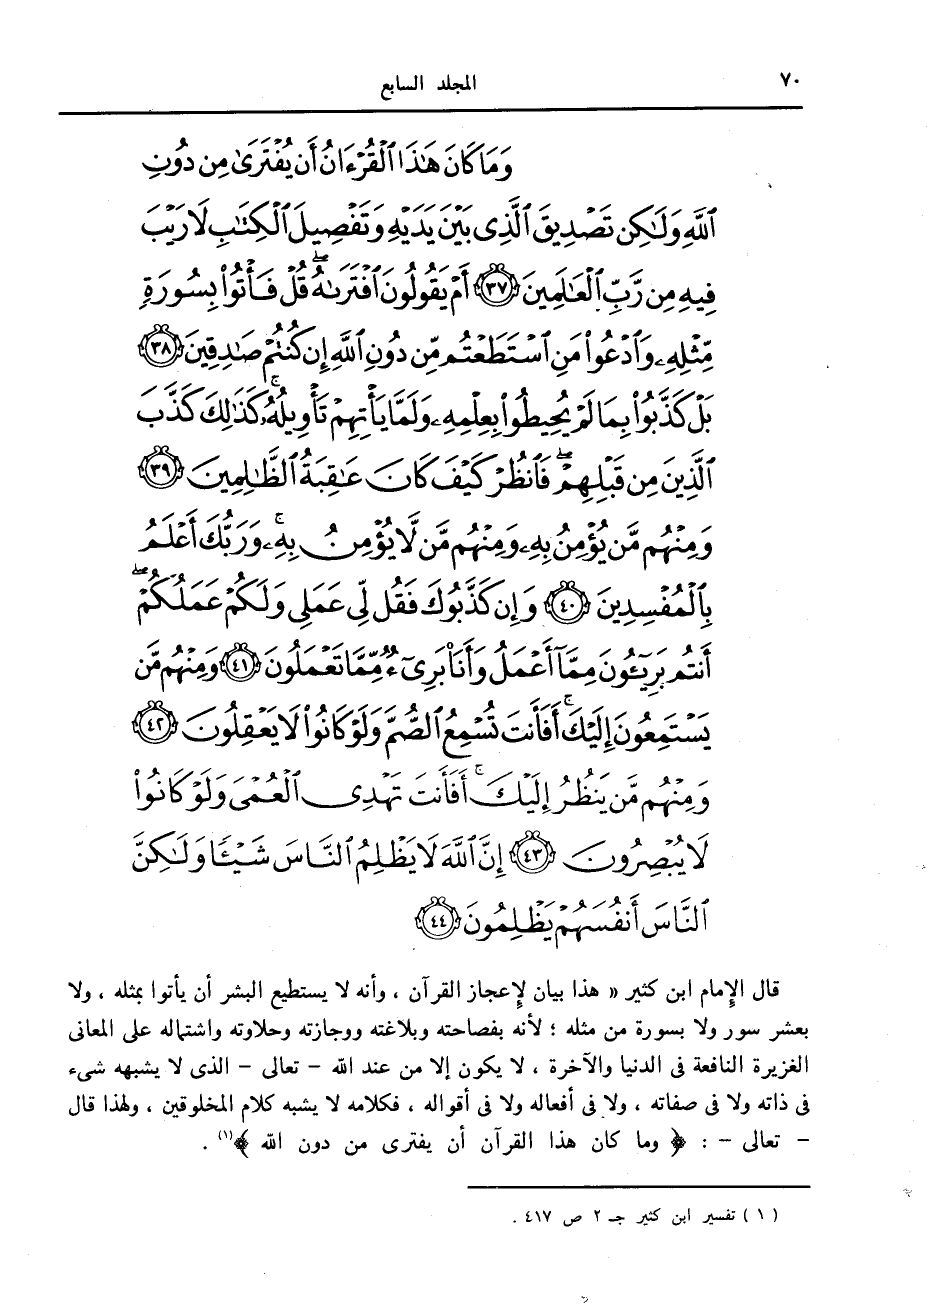 ٧٠ المجلد السابع
وَمَا كَانَ هَٰذَا ٱلْقُرْءَانُ أَن يُفْتَرَىٰ مِن دُونِ
ٱللَّهِ وَلَٰكِن تَصْدِيقَ ٱلَّذِى بَيْنَ يَدَيْهِ وَتَفْصِيلَ ٱلْكِتَٰبِ لَا رَيْبَ
فِيهِ مِن رَّبِّ ٱلْعَٰلَمِينَ ﴿٣٧﴾ أَمْ يَقُولُونَ ٱفْتَرَىٰهُ ۖ قُلْ فَأْتُوا۟ بِسُورَةٍ
مِّثْلِهِۦ وَٱدْعُوا۟ مَنِ ٱسْتَطَعْتُم مِّن دُونِ ٱللَّهِ إِن كُنتُمْ صَٰدِقِينَ ﴿٣٨﴾
بَلْ كَذَّبُوا۟ بِمَا لَمْ يُحِيطُوا۟ بِعِلْمِهِۦ وَلَمَّا يَأْتِهِمْ تَأْوِيلُهُۥ ۚ كَذَٰلِكَ كَذَّبَ
ٱلَّذِينَ مِن قَبْلِهِمْ ۖ فَٱنظُرْ كَيْفَ كَانَ عَٰقِبَةُ ٱلظَّٰلِمِينَ ﴿٣٩﴾
وَمِنْهُم مَّن يُؤْمِنُ بِهِۦ وَمِنْهُم مَّن لَّا يُؤْمِنُ بِهِۦ ۚ وَرَبُّكَ أَعْلَمُ
بِٱلْمُفْسِدِينَ ﴿٤٠﴾ وَإِن كَذَّبُوكَ فَقُل لِّى عَمَلِى وَلَكُمْ عَمَلُكُمْ ۖ
أَنتُم بَرِيٓـُٔونَ مِمَّآ أَعْمَلُ وَأَنَا۠ بَرِىٓءٌ مِّمَّا تَعْمَلُونَ ﴿٤١﴾ وَمِنْهُم مَّن
يَسْتَمِعُونَ إِلَيْكَ ۚ أَفَأَنتَ تُسْمِعُ ٱلصُّمَّ وَلَوْ كَانُوا۟ لَا يَعْقِلُونَ ﴿٤٢﴾
وَمِنْهُم مَّن يَنظُرُ إِلَيْكَ ۚ أَفَأَنتَ تَهْدِى ٱلْعُمْىَ وَلَوْ كَانُوا۟
لَا يُبْصِرُونَ ﴿٤٣﴾ إِنَّ ٱللَّهَ لَا يَظْلِمُ ٱلنَّاسَ شَيْـًٔا وَلَٰكِنَّ
ٱلنَّاسَ أَنفُسَهُمْ يَظْلِمُونَ ﴿٤٤﴾
قال الإمام ابن كثير « هذا بيان لإعجاز القرآن ، وأنه لا يستطيع البشر أن يأتوا بمثله ، ولا
بعشر سور ولا بسورة من مثله ؛ لأنه بفصاحته وبلاغته ووجازته وحلاوته واشتماله على المعانى
الغزيرة النافعة فى الدنيا والآخرة ، لا يكون إلا من عند الله – تعالى – الذى لا يشبهه شىء
فى ذاته ولا فى صفاته ، ولا فى أفعاله ولا فى أقواله ، فكلامه لا يشبه كلام المخلوقين ، ولهذا قال
– تعالى – : ﴿ وما كان هذا القرآن أن يفترى من دون الله ﴾(١) .
( ١ ) تفسير ابن كثير جـ ٢ ص ٤١٧ .